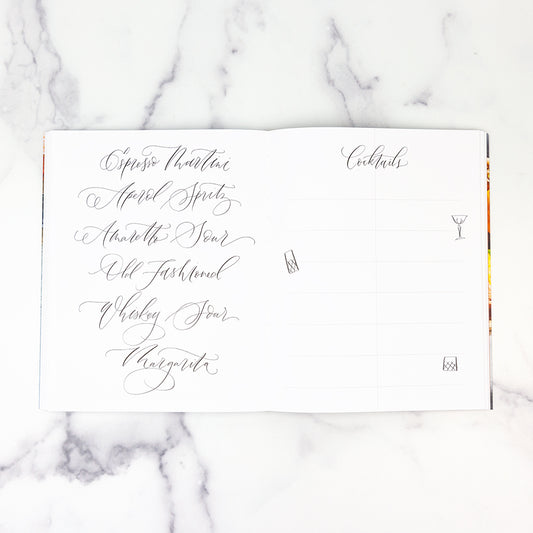 Espresso Martini
Aperol Spritz
Amaretto Sour
Old Fashioned
Whiskey Sour
Margarita
Cocktails